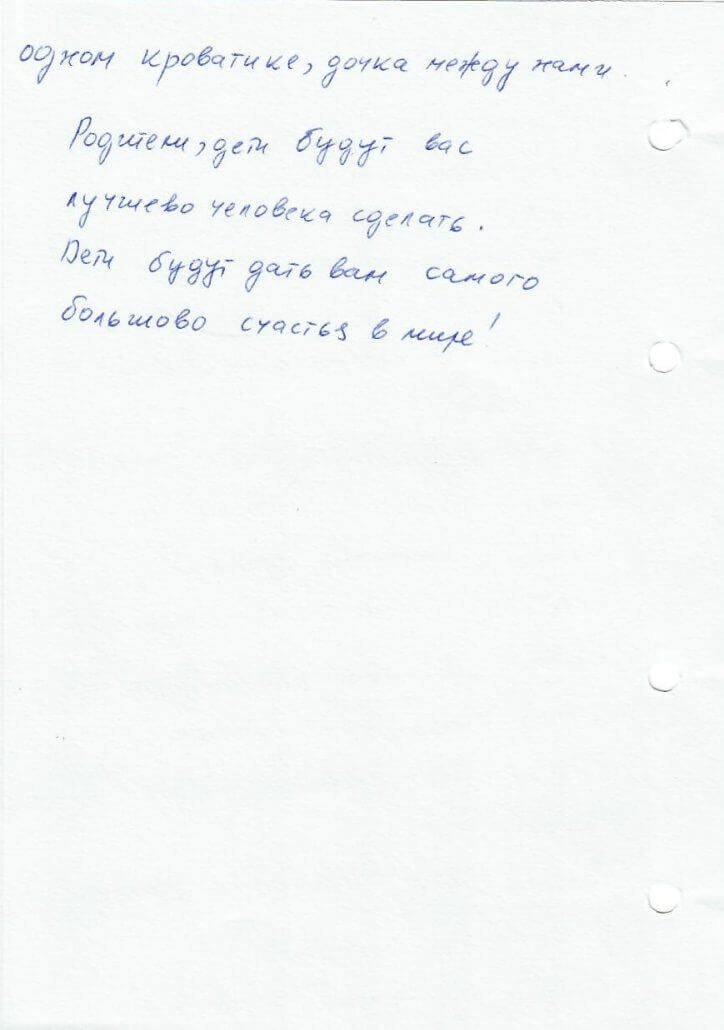 одном кроватике, дочка между нами.
Родители, дети будут вас
лучшево человека сделать.
Дети будут дать вам самого
большово счастья в мире!